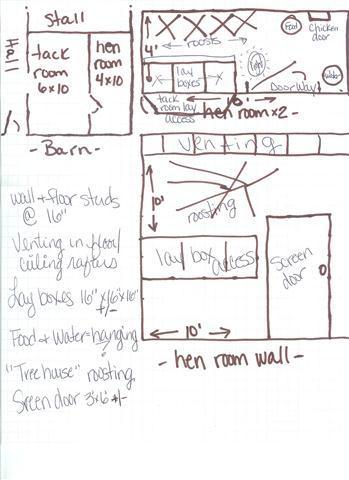 Stall
Hall
tack room 6x10
hen room 4x10
- Barn -
4'
roosts
Food
Chicken door
lay boxes
Water
Doorway
6'
tack room lay access
hen room x2 -
venting
10'
roosting
lay box access
Screen door
10'
- hen room wall -
wall + floor studs
@ 16"
Venting in floor/
ceiling rafters
Lay boxes 16"x16"x16"
+/-
Food + Water = hanging
?
"Tree house" roosting
Sreen door 3'x6' +/-